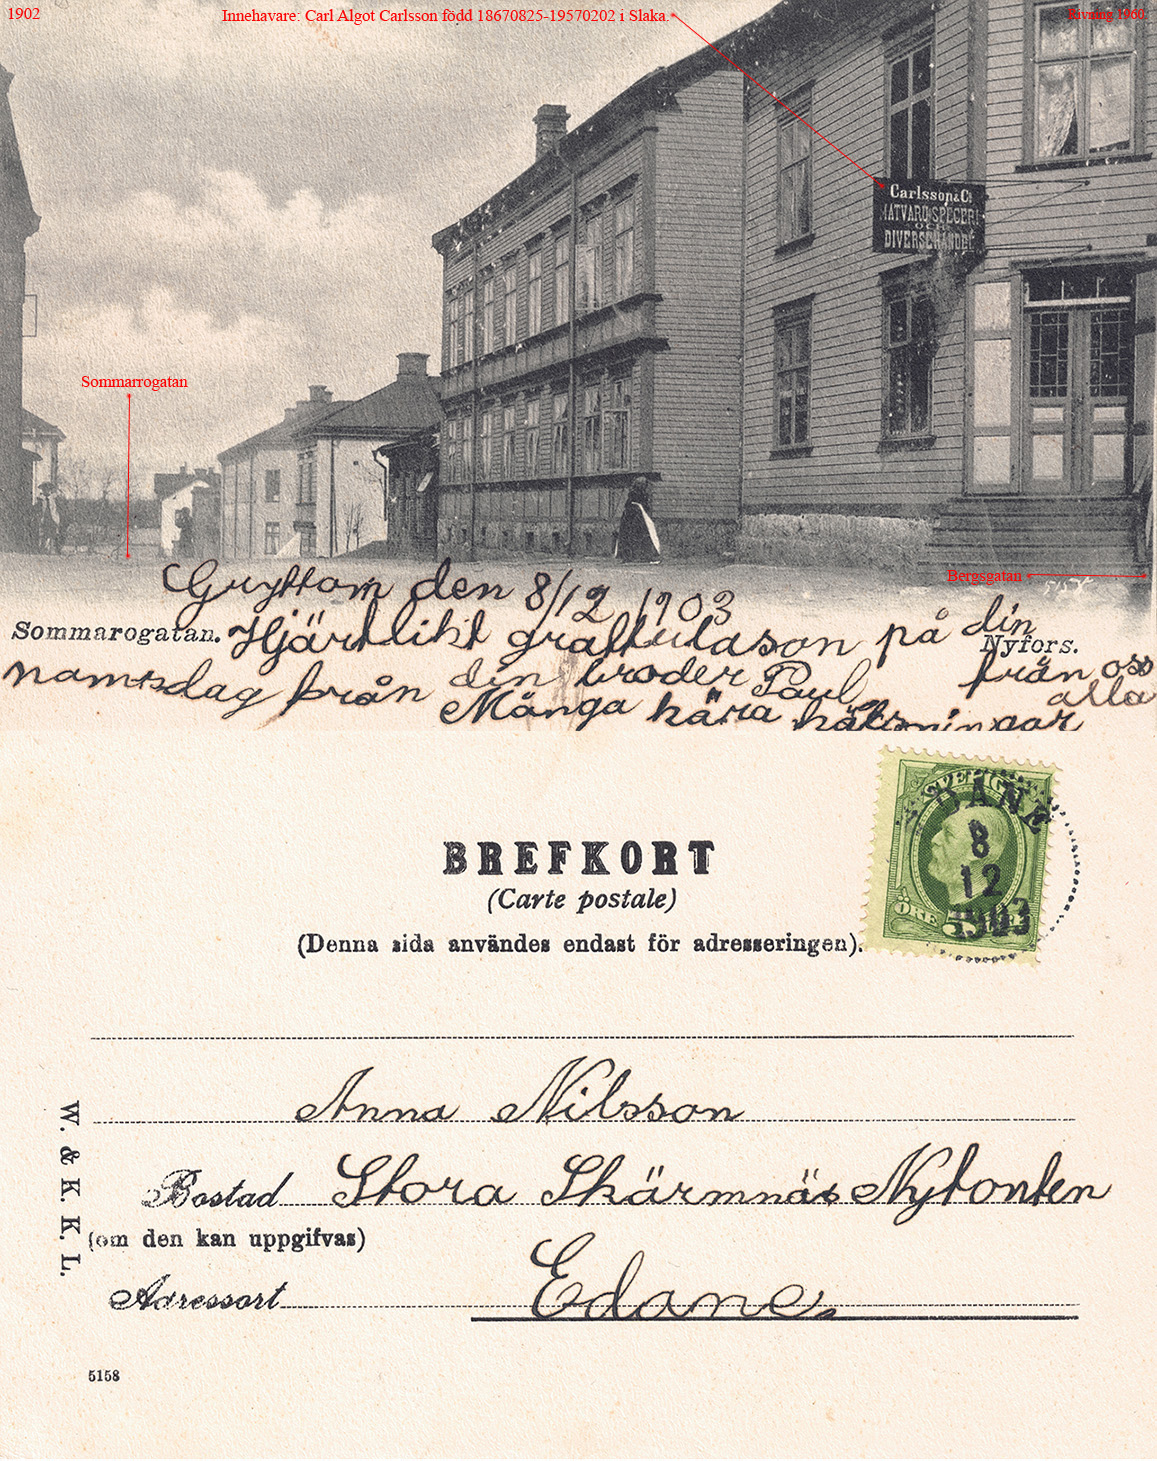 1902
Innehavare: Carl Algot Carlsson född 18670825-19570202 i Slaka.
Rivning 1960.
Carlsson & Co
MATVARU, SPECERI
OCH
DIVERSEHANDEL
Sommarrogatan
Bergsgatan
Sommarogatan.
Nyfors.
den 8/12 1903
Hjärtlikt grattulason på din
namnsdag från din broder Paul
från oss
alla
Många kära hälsningar
BREFKORT
(Carte postale)
(Denna sida användes endast för adresseringen).
SVERIGE
5 ÖRE
EDANE
8
12
1903
Anna Nilsson
Bostad Stora Skärmnäs Nytomten
(om den kan uppgifvas)
Adressort Edane.
W. & K. K. L.
5158